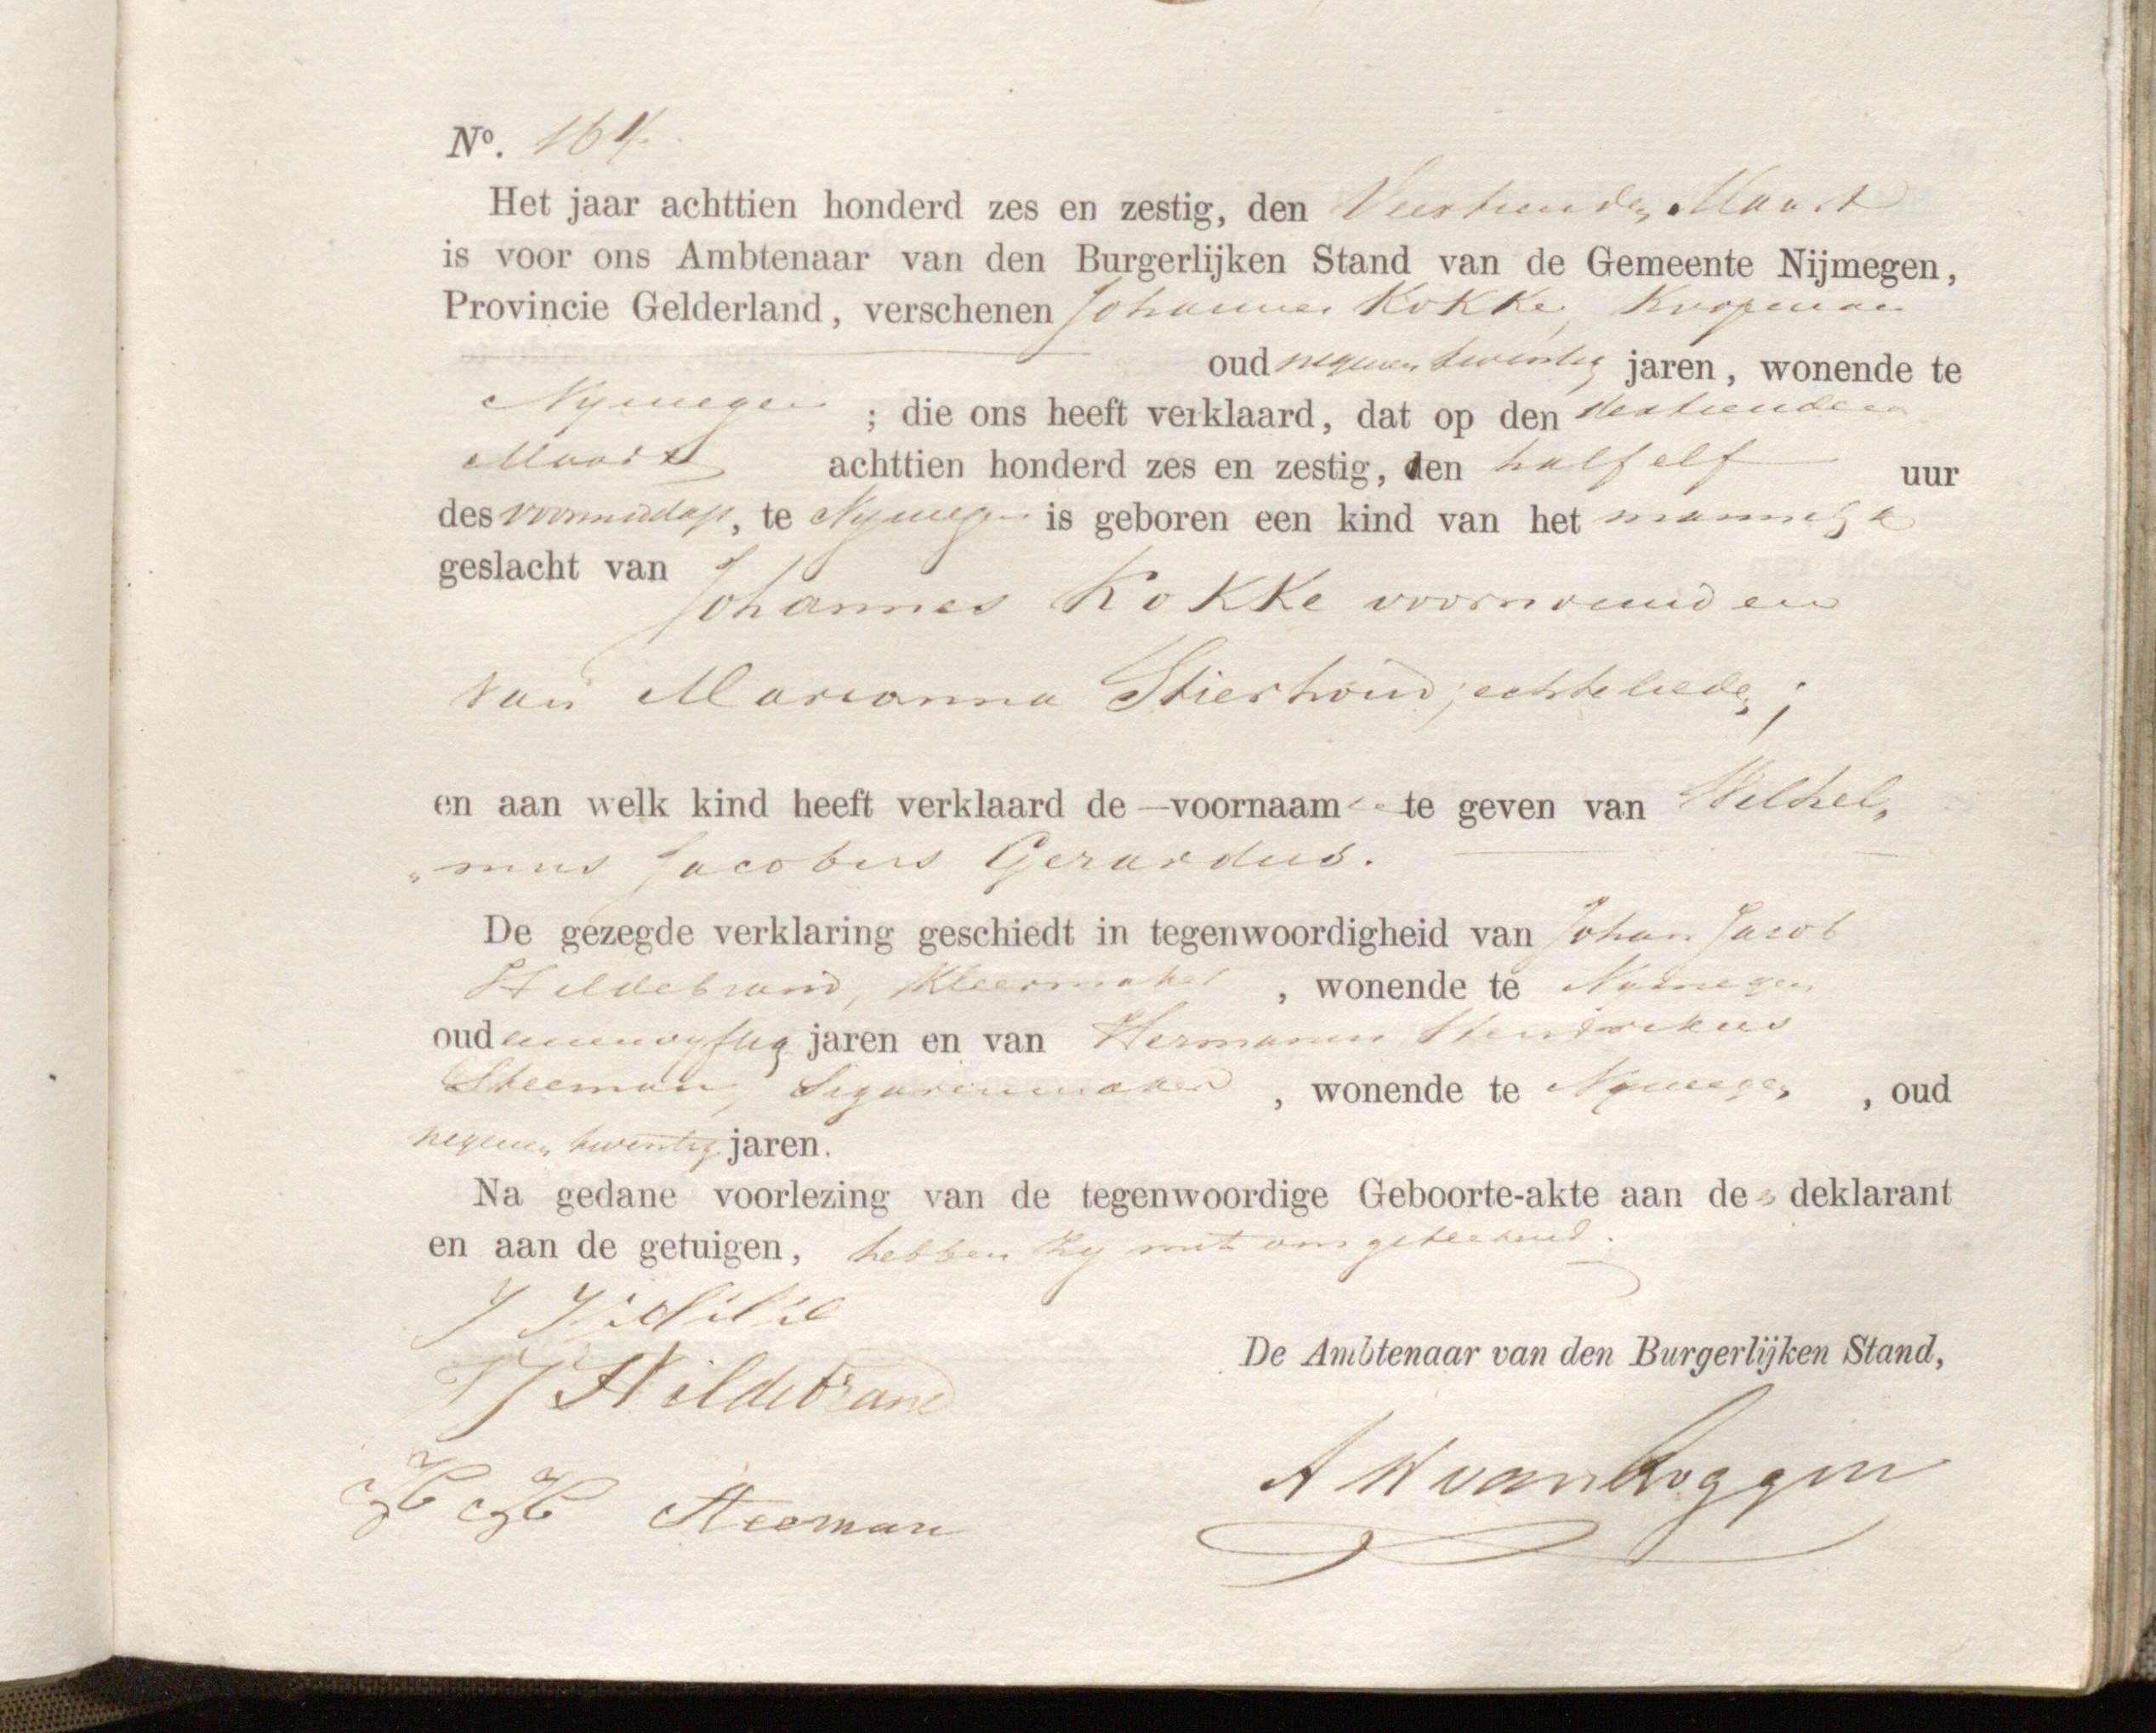 No. 164
Het jaar achttien honderd zes en zestig, den Veertienden Maart
is voor ons Ambtenaar van den Burgerlijken Stand van de Gemeente Nijmegen,
Provincie Gelderland, verschenen Johannes Kokke, Koopman
oud negenen twintig jaren, wonende te
Nymegen ; die ons heeft verklaard, dat op den dertienden
Maart achttien honderd zes en zestig, den half elf uur
des voormiddags, te Nymegen is geboren een kind van het mannelyk
geslacht van Johannes Kokke voornoemd en
van Marianna Stierhoud, echtelieden;
en aan welk kind heeft verklaard de voornaam te geven van Wilhel„
„mus Jacobus Gerardus.
De gezegde verklaring geschiedt in tegenwoordigheid van Johan Jacob
Hildebrand, Kleermaker, wonende te Nymegen
oud eenenvyftig jaren en van Hermanus Hendrikus
Steeman, Sigarenmaker, wonende te Nymegen, oud
negenen twintig jaren.
Na gedane voorlezing van de tegenwoordige Geboorte-akte aan den deklarant
en aan de getuigen, hebben zy met ons geteekend.
De Ambtenaar van den Burgerlijken Stand,
JJ Hildebrand
HH Steeman